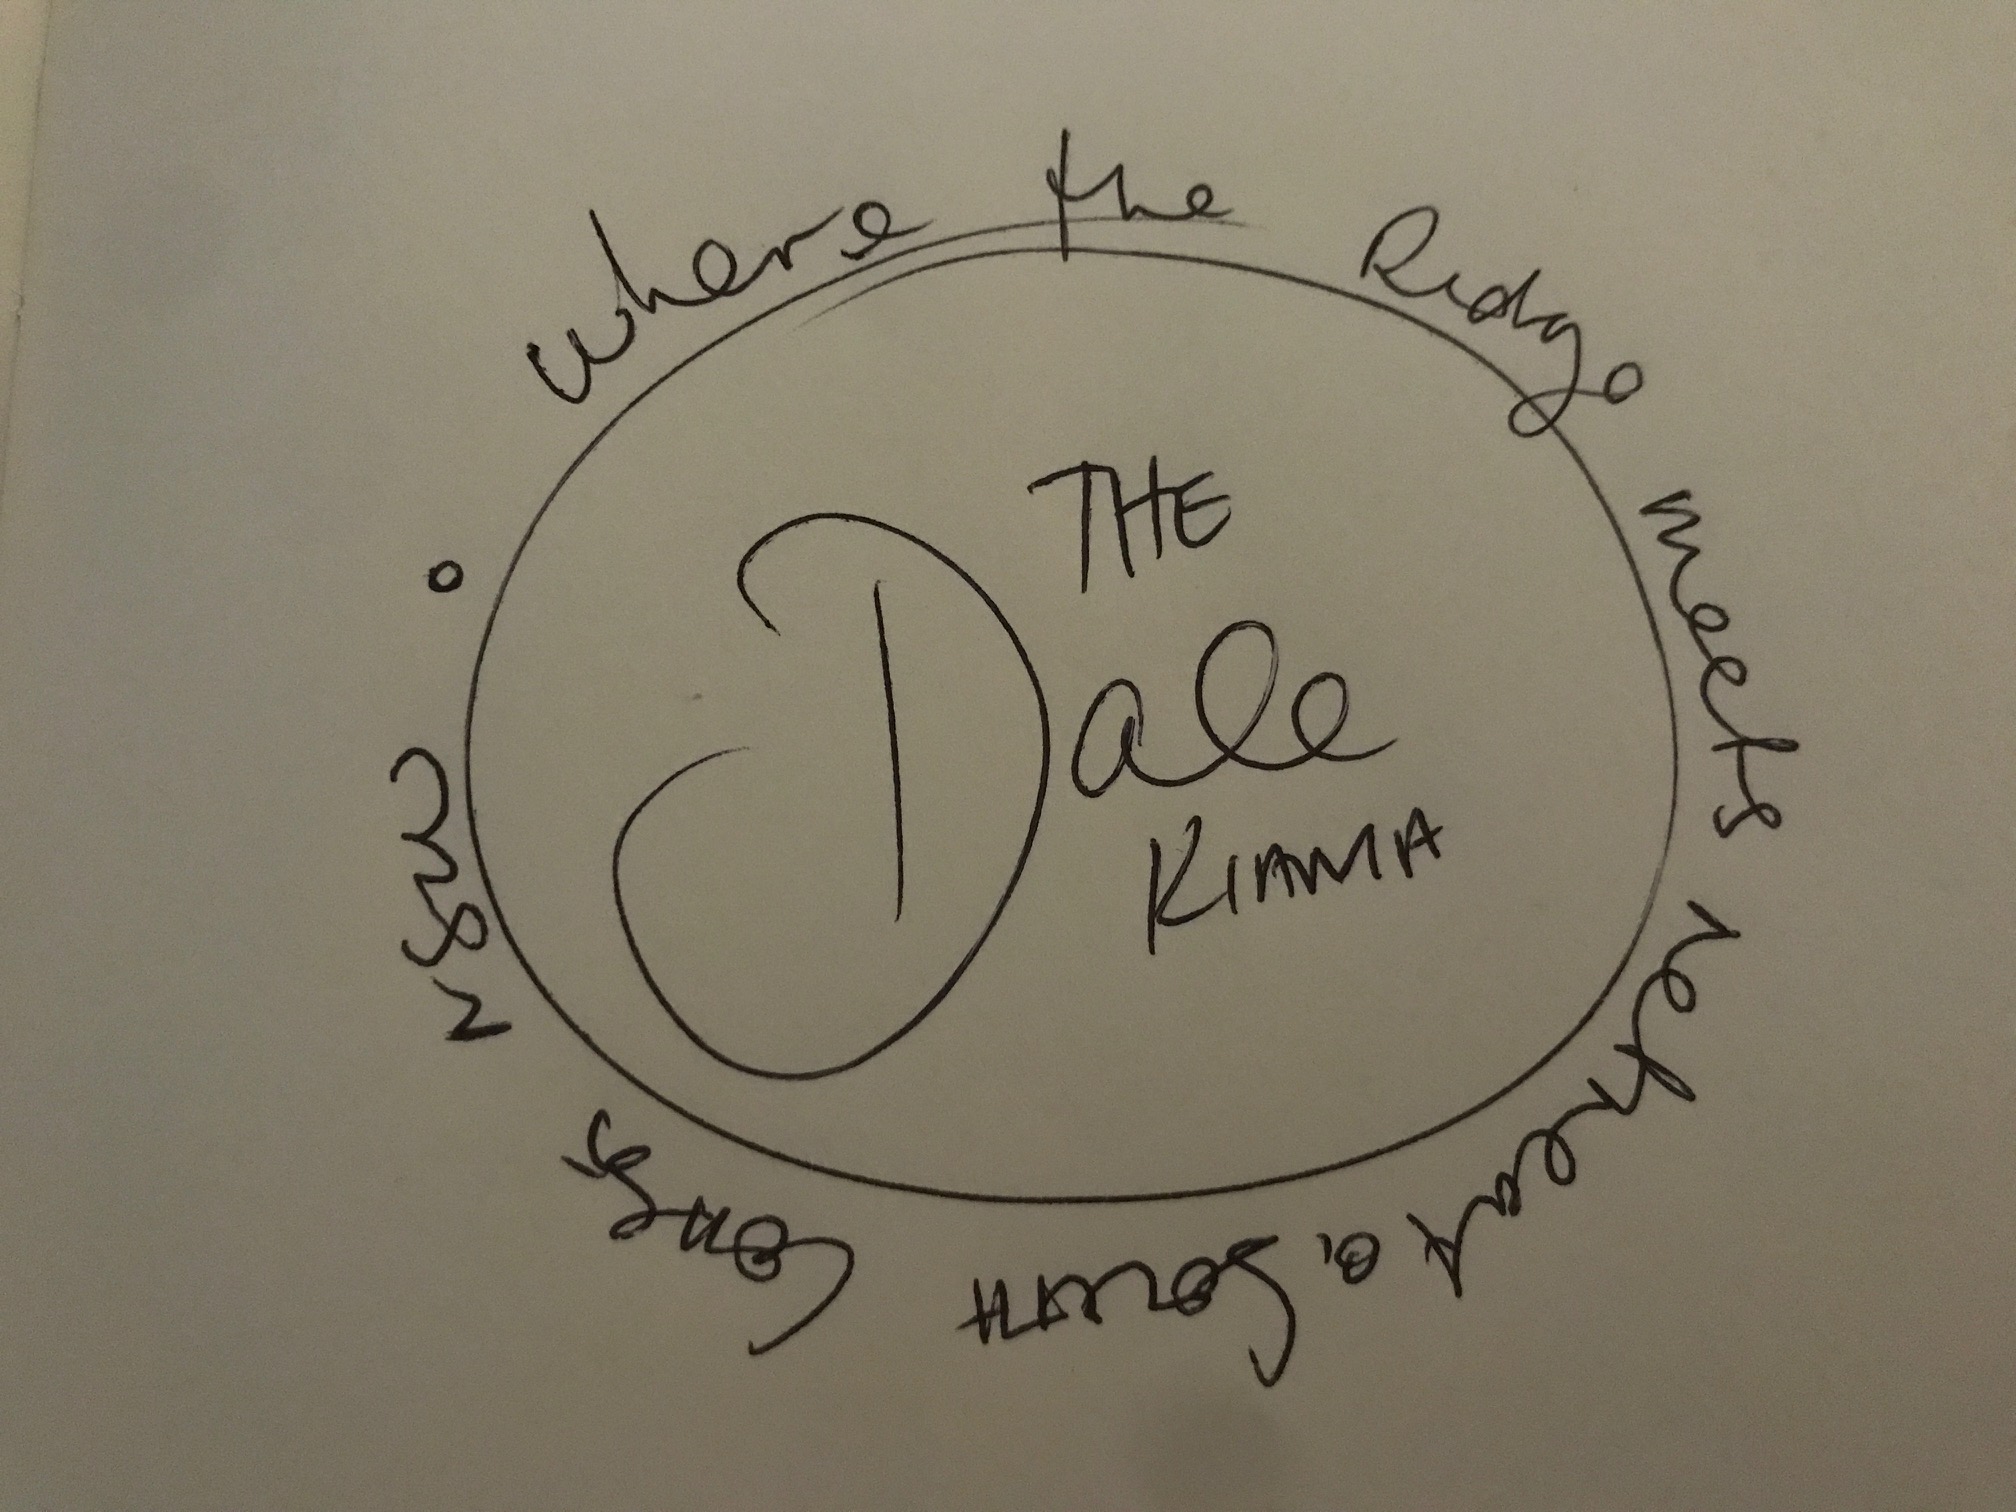 where the Ridge meets retreat o. South Coast NSW o
THE
Dale
KIAMA